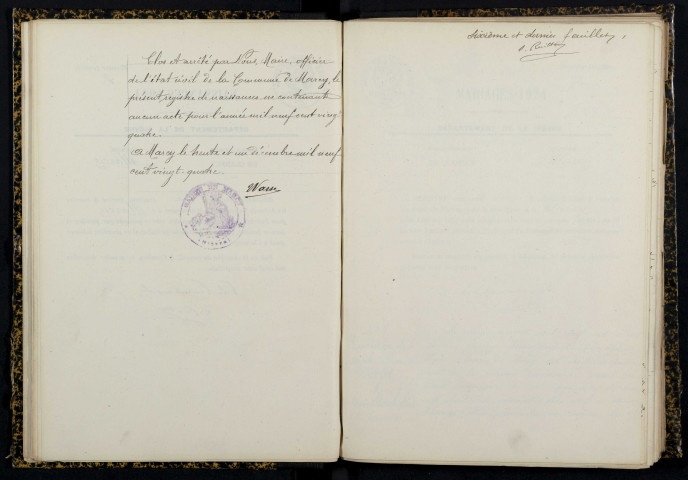 Clos et arrêté par Nous, Maire officier
de l'état civil de la Commune de Marcy, le
présent registre de naissances, ne contenant
aucun acte pour l'année mil neuf cent vingt
quatre.
A Marcy le trente et un décembre mil neuf
cent vingt-quatre.
MAIRIE DE MARCY
(NIÈVRE)
Sixième et dernier feuillet